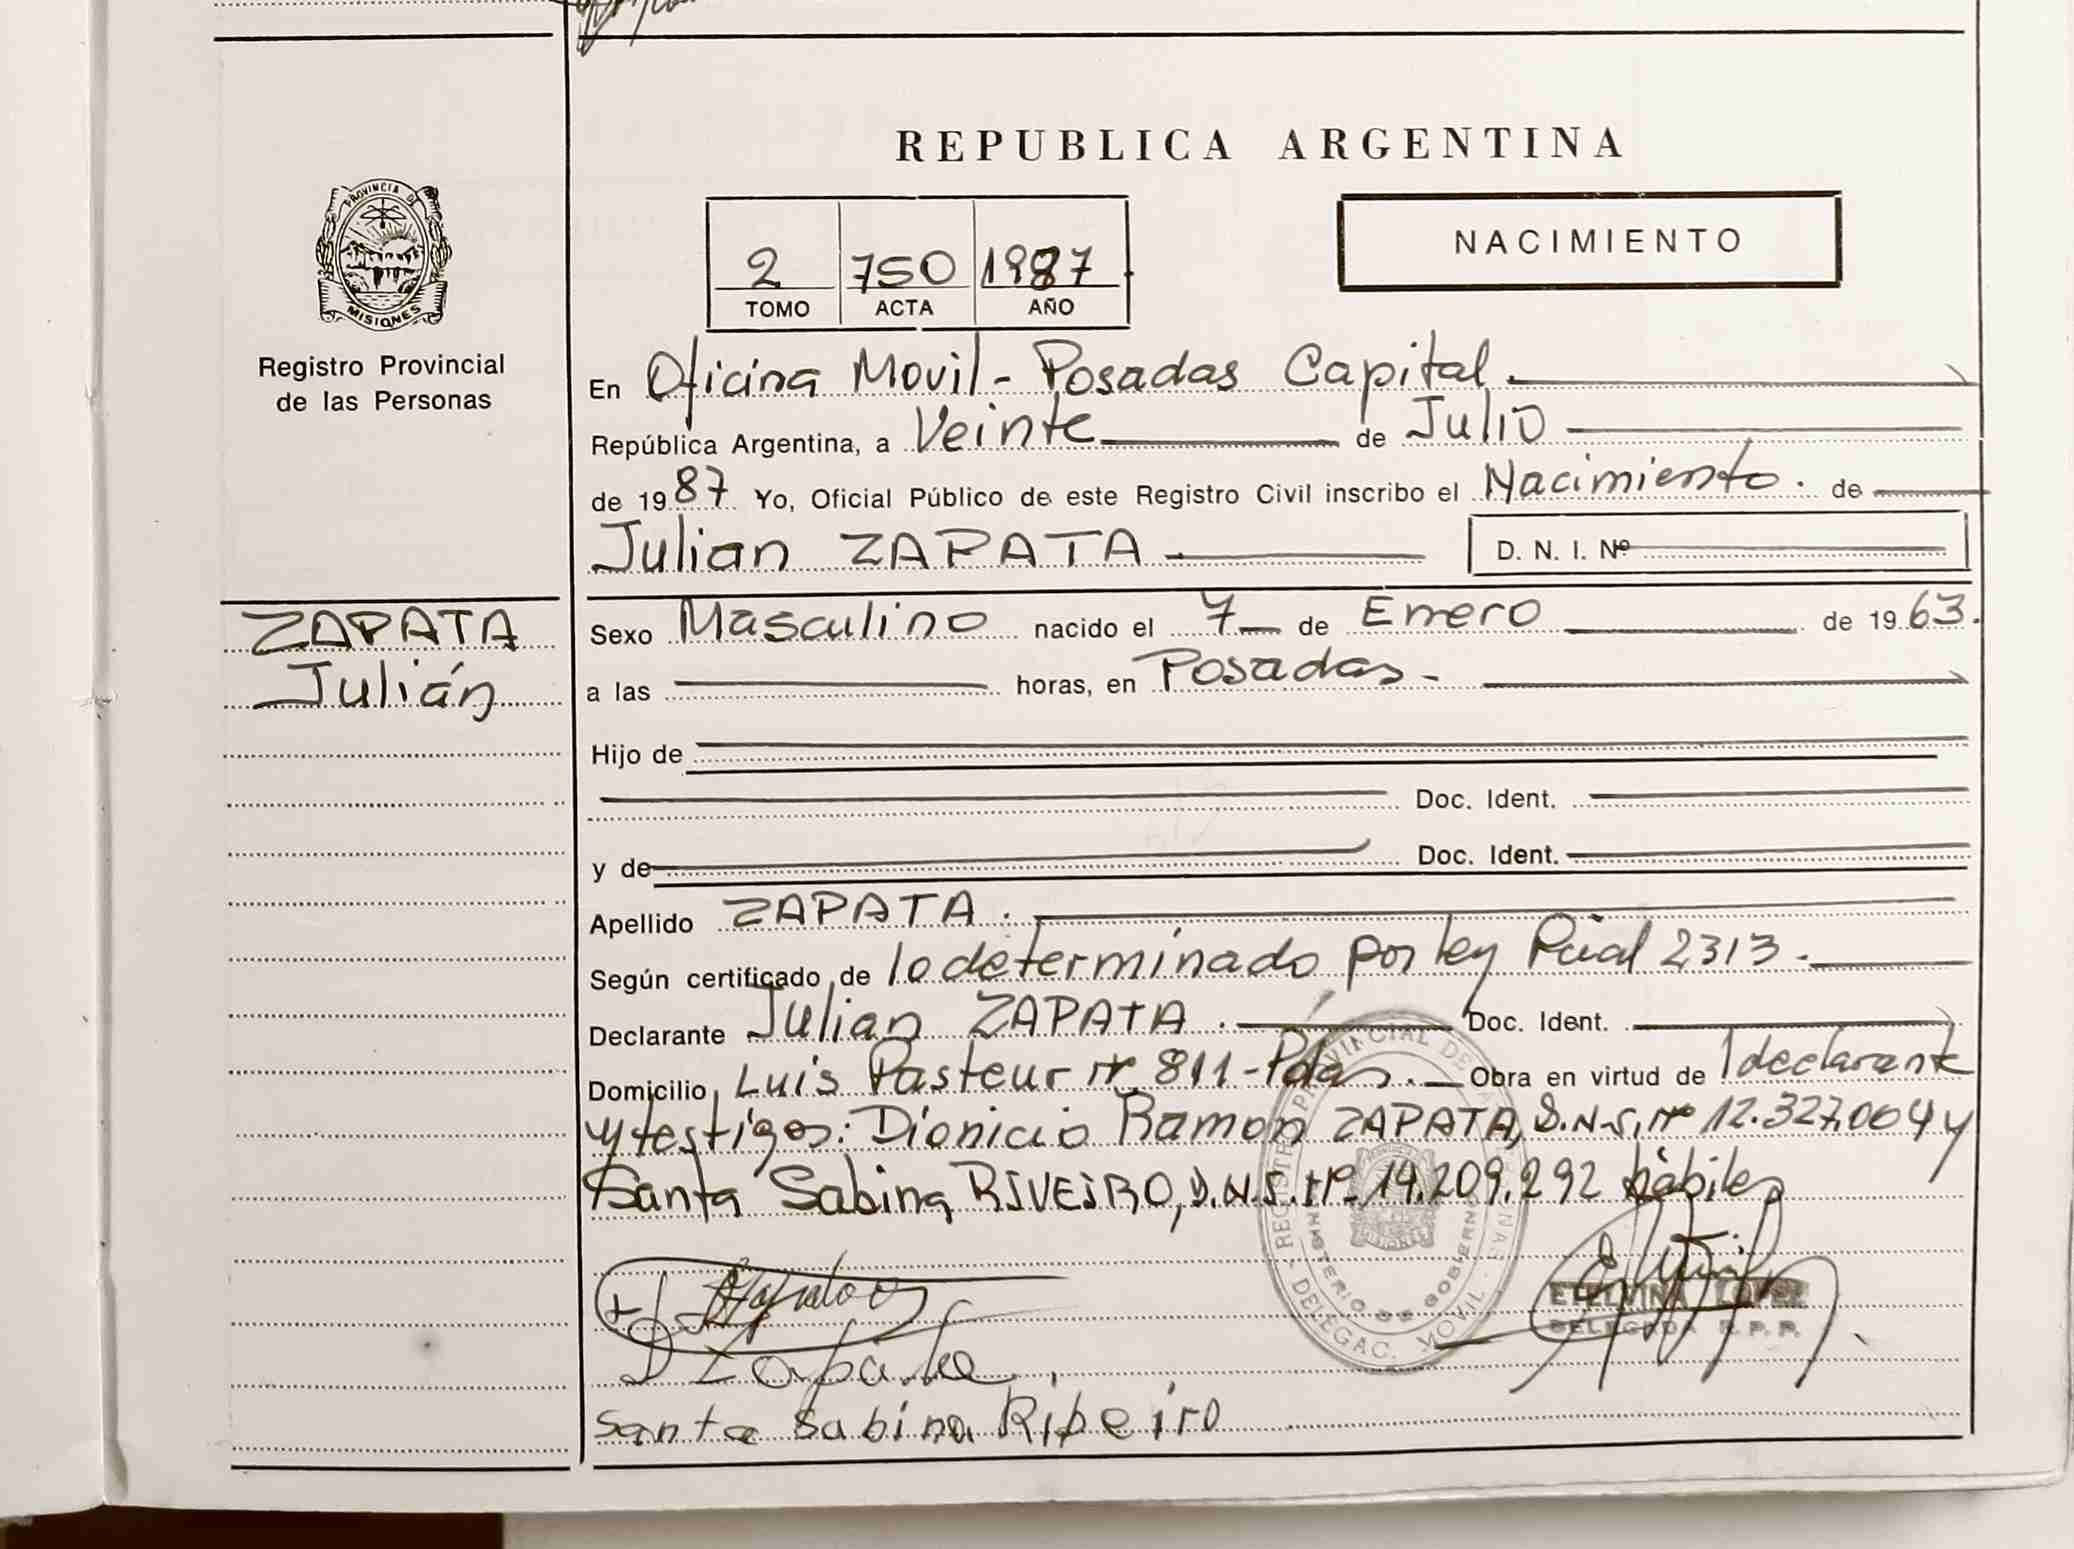 REPUBLICA ARGENTINA
PROVINCIA DE
MISIONES
Registro Provincial
de las Personas
2 750 1987
TOMO ACTA AÑO
NACIMIENTO
En Oficina Movil - Posadas Capital.
República Argentina, a Veinte de Julio
de 1987 Yo, Oficial Público de este Registro Civil inscribo el Nacimiento. de
Julian ZAPATA D. N. I. Nº
ZAPATA
Julián
Sexo Masculino nacido el 7 de Enero de 1963.
a las horas, en Posadas.-
Hijo de
Doc. Ident.
y de Doc. Ident.
Apellido ZAPATA.
Según certificado de lo determinado por ley Pcial 2313.
Declarante Julian ZAPATA. Doc. Ident.
Domicilio Luis Pasteur Nº 811-Pdas. Obra en virtud de 1 declarante
y testigos: Dionicio Ramon ZAPATA, D.N.I. Nº 12.327.004 y
Santa Sabina RIVEIRO, D.N.I. Nº 14.209.292 hábiles
REGISTRO PROVINCIAL DE LAS PERSONAS
MINISTERIO DE GOBIERNO
DELEGAC. MOVIL
ETELVINA LOPEZ
DELEGADA R. P. P.
D Zapata
Santa Sabina Ribeiro